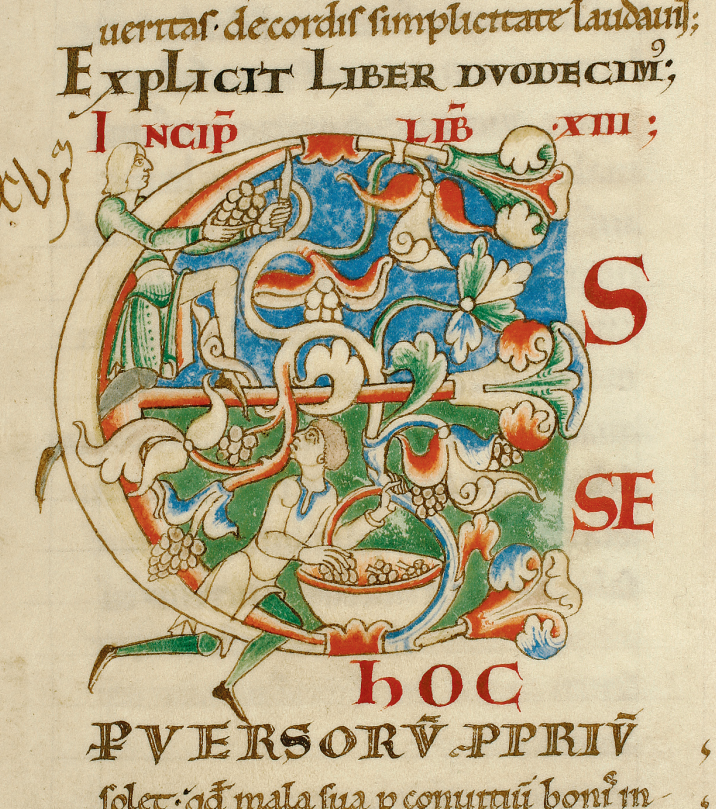 ueritas· de cordis simplicitate laudauit;
EXPLICIT LIBER DVODECIMꝰ;
INCIP̄ LIB̄ ·XIII;
xvj
ESSE
HOC
PVERSORV̄ PPRIV̄
solet· qđ mala sua p conuitiū boniſ in-